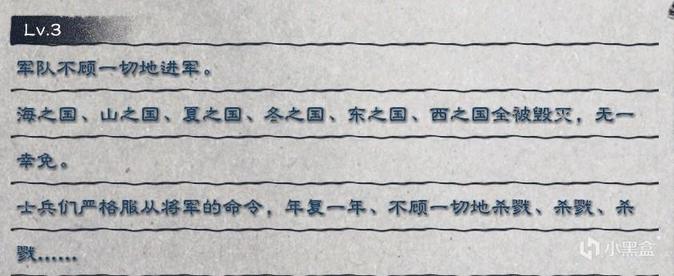 Lv.3
军队不顾一切地进军。
海之国、山之国、夏之国、冬之国、东之国、西之国全被毁灭，无一
幸免。
士兵们严格服从将军的命令，年复一年、不顾一切地杀戮、杀戮、杀
戮……
小黑盒